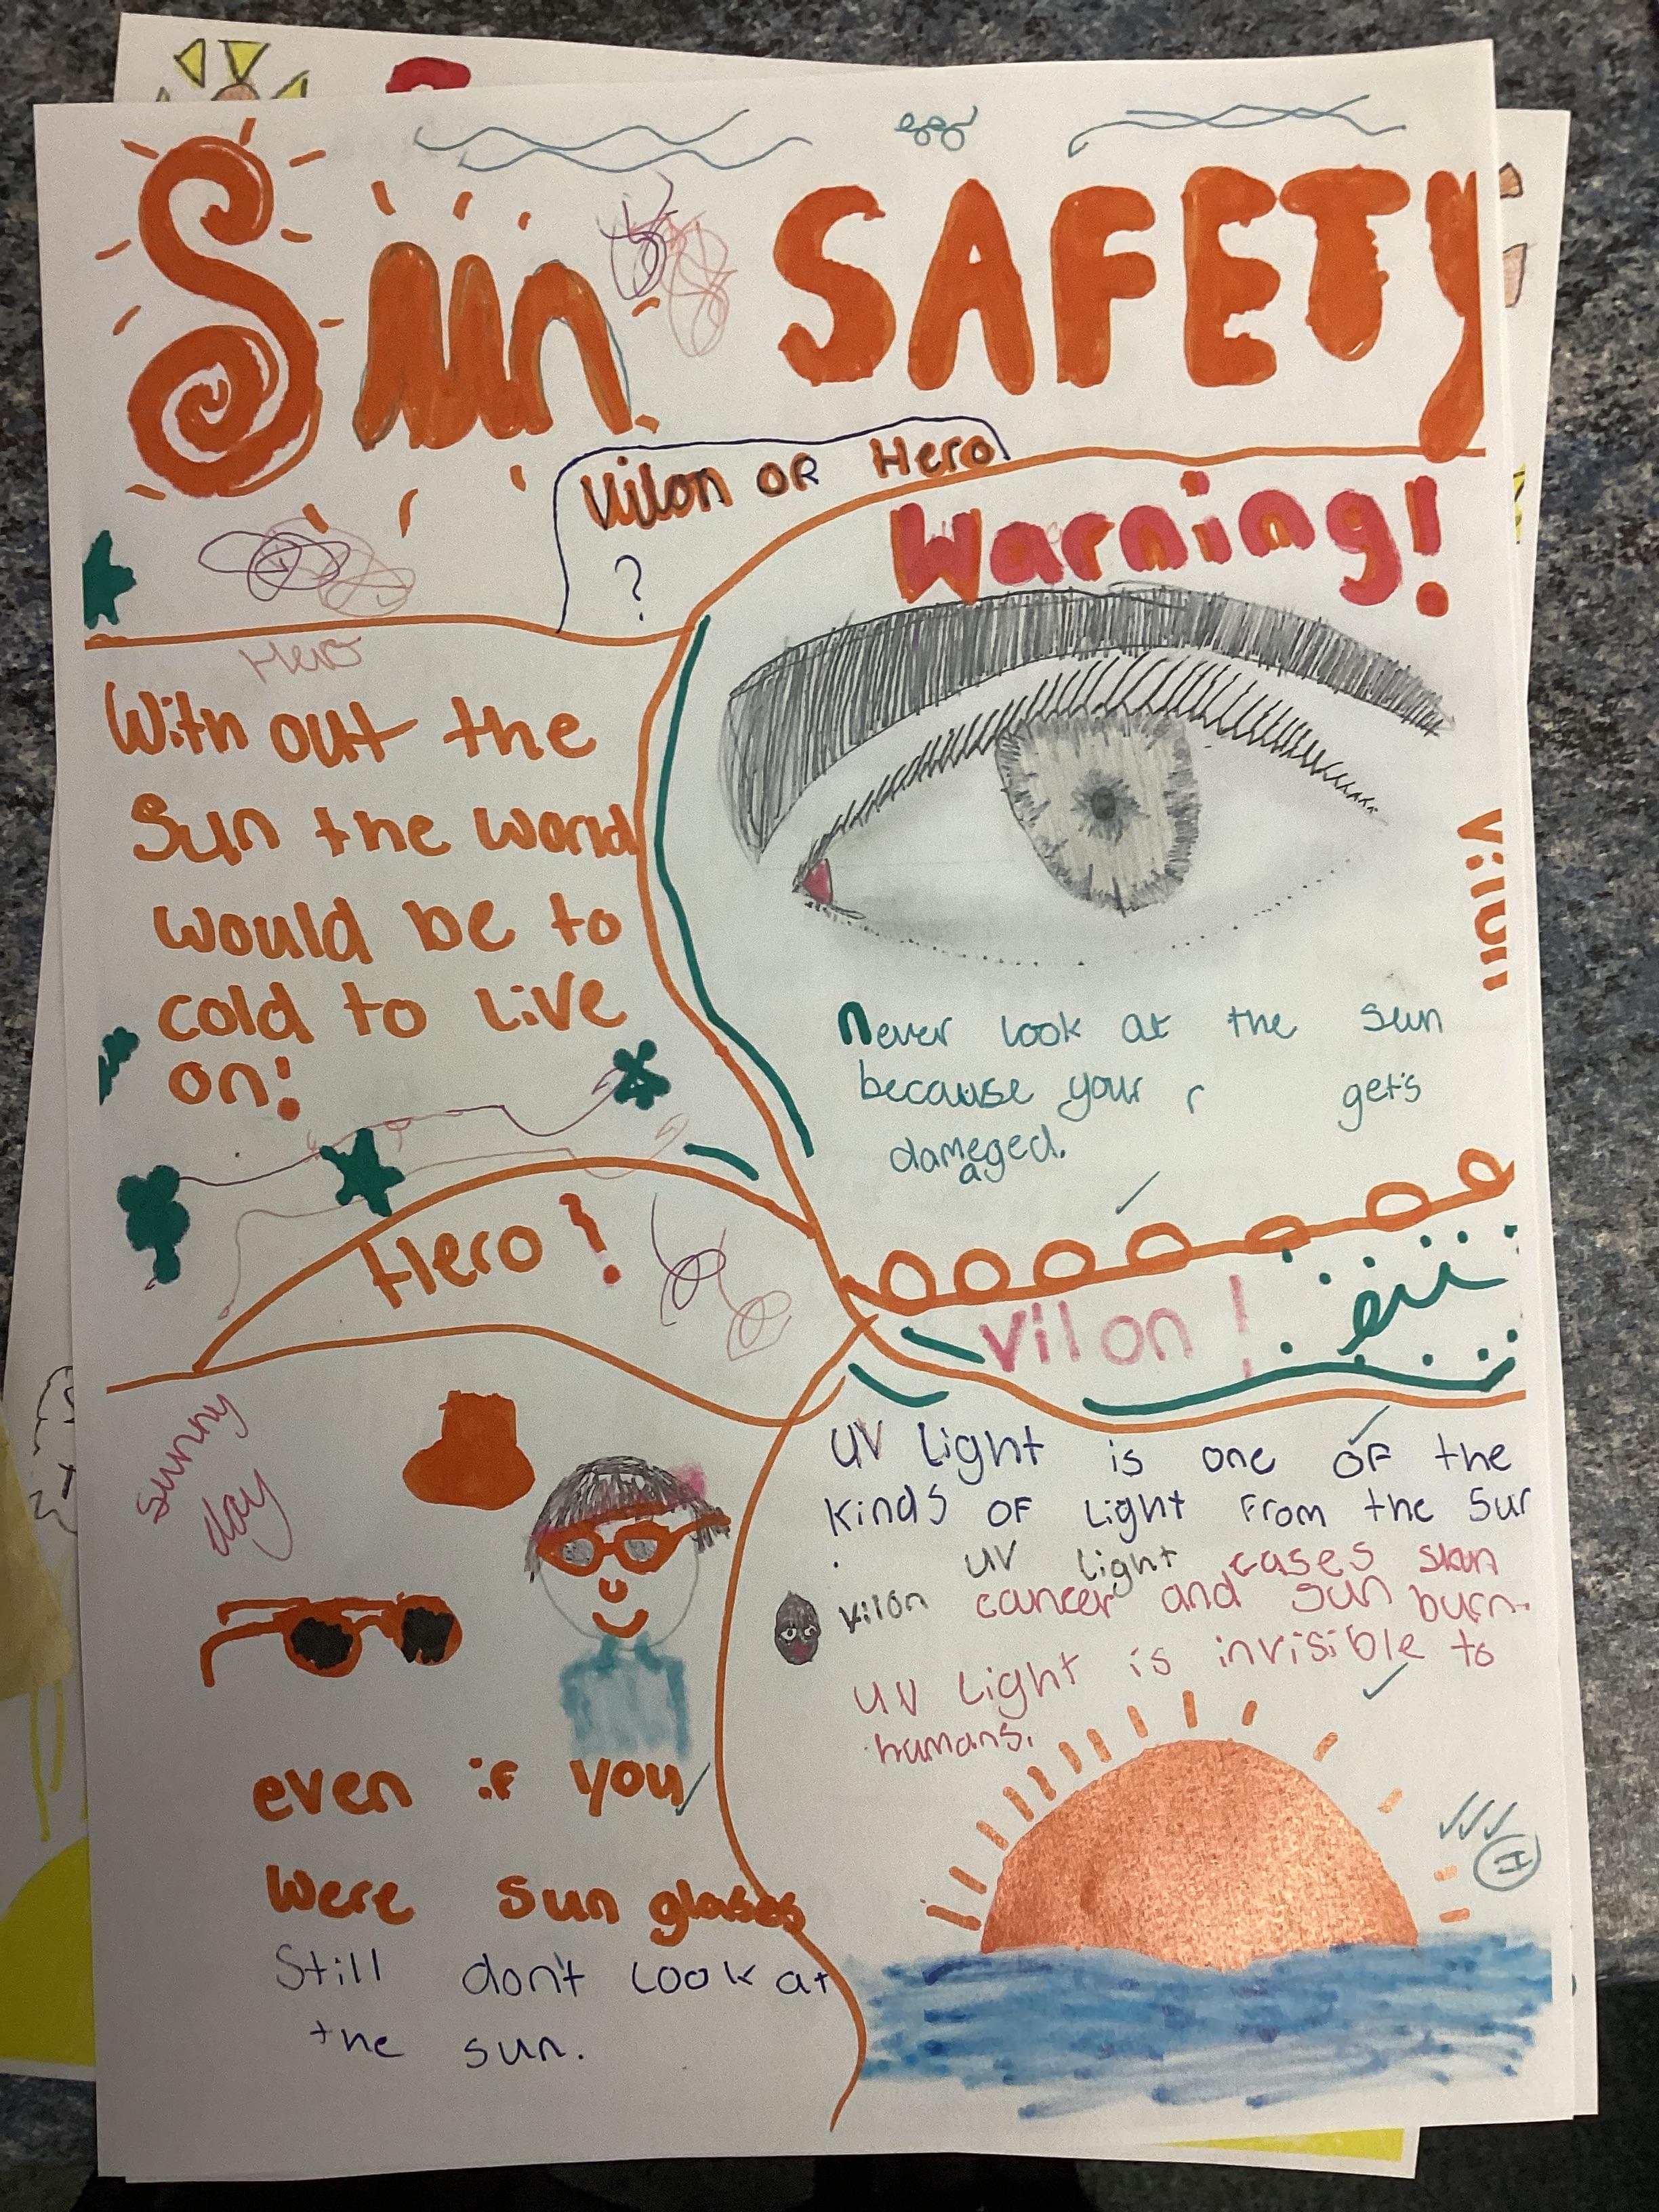 Sun SAFETY
Vilon OR Hero
?
Warning!
Hero
With out the
Sun the world
would be to
cold to Live
on!
Vilon
Never look at the sun
because your r gets
damaged.
a
Hero!
Vilon!
sunny
day
UV Light is one of the
kinds of Light from the Sun
. UV light cases skin
vilon cancer and sun burn.
UV Light is invisible to
humans.
even if you
Were sun glases
Still don't Look at
the sun.